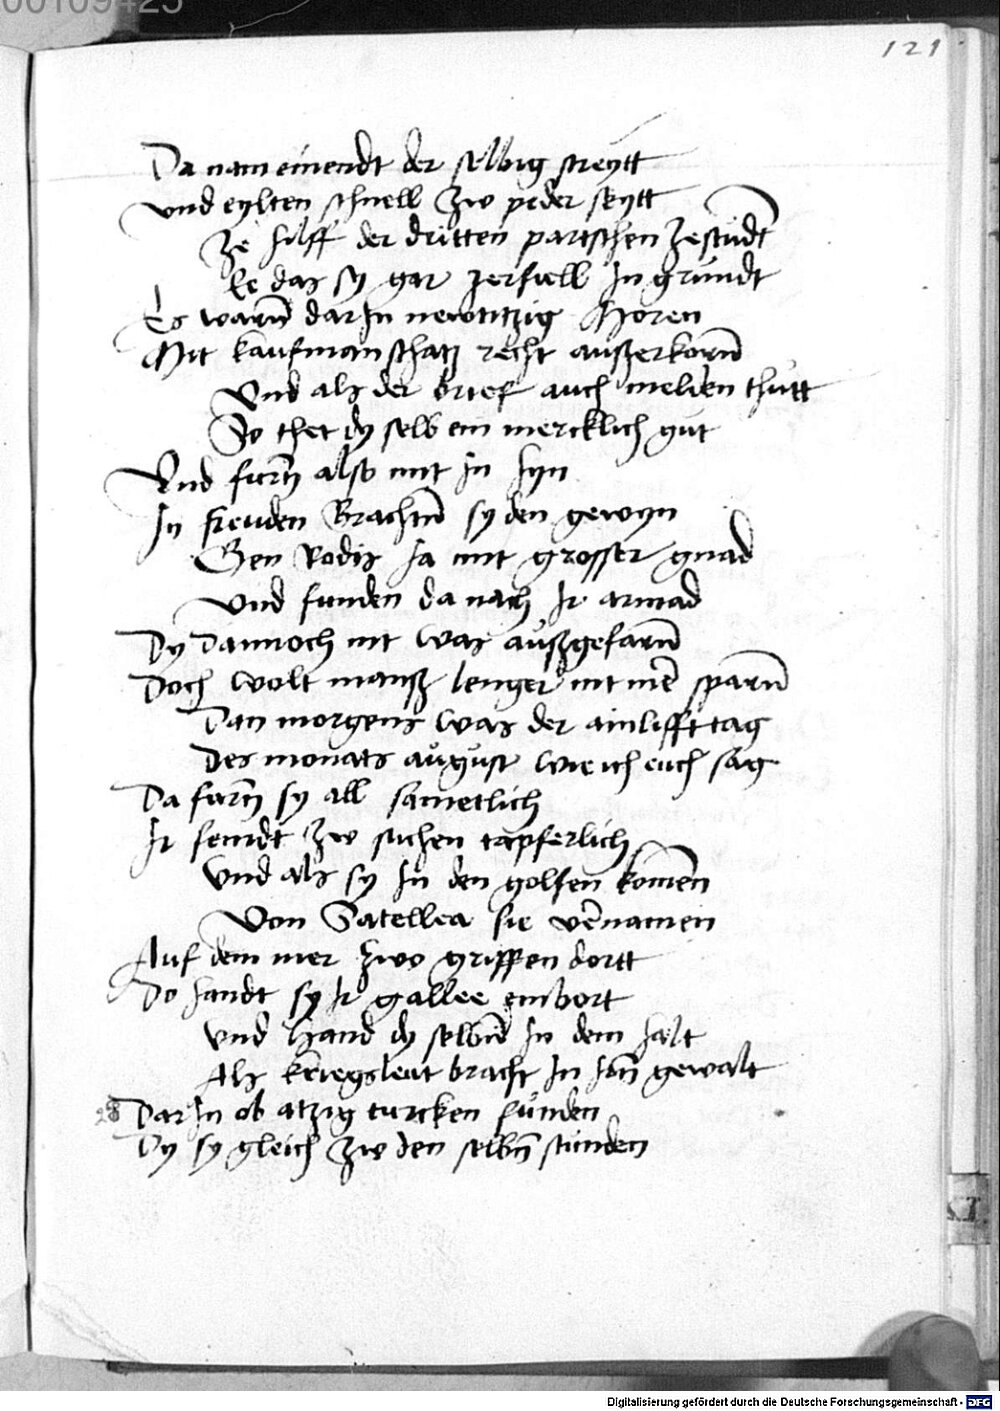 00109425
121
Da nam ein endt der selbig streytt
vnd eylten schnell zw yeder seytt
ze hilff der dritten partschen zestŭndt
Ee das sy gar zerfiell In grŭndt
Es warn̄ darIn newntzig Moren
Mit kaufmanschatz recht außerkorn̄
Vnd als der brief auch melden thŭtt
So thet dy selb ein mercklich gŭt
Vnd furn̄ also mit In hyn
In freuden Brachtn̄ sy den gewyn
Gen Rodis ja mit grosser gnad
vnd funden da nach Ir armad
Dy dannoch nit was aŭßgefarn̄
Doch wolt manß lenger nit mer sparn̄
Dan morgens was der ainlifft tag
Des monats aŭgŭst wie ich eŭch sag
Da furn̄ sy all sametlich
Ir feindt zw suchen tapferlich
vnd als sy In den golfen komen̄
Von Satellea sie vernamen
Auf dem mer zwo grippen dortt
Do sandt sy Ir gallee embort
vnd hand dy selbn̄ In dem halt
Als kriegsleut bracht In Irn̄ gewalt
DarIn ob atzig turcken fŭnden
Dy sy gleich zw den selbn̄ stŭnden
Digitalisierung gefördert durch die Deutsche Forschungsgemeinschaft - DFG